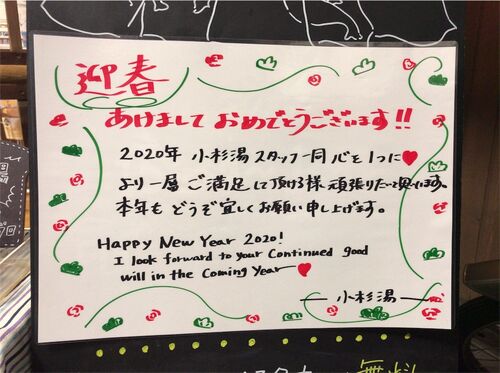 迎春
あけまして おめでとうございます!!
2020年 小杉湯スタッフ一同 心を1つに♥
より一層 ご満足して頂ける様 頑張りたい思います。
本年も どうぞ宜しくお願い申し上げます。
Happy New Year 2020!
I look forward to your Continued good
will in the Coming Year ♥
— 小杉湯 —
無料